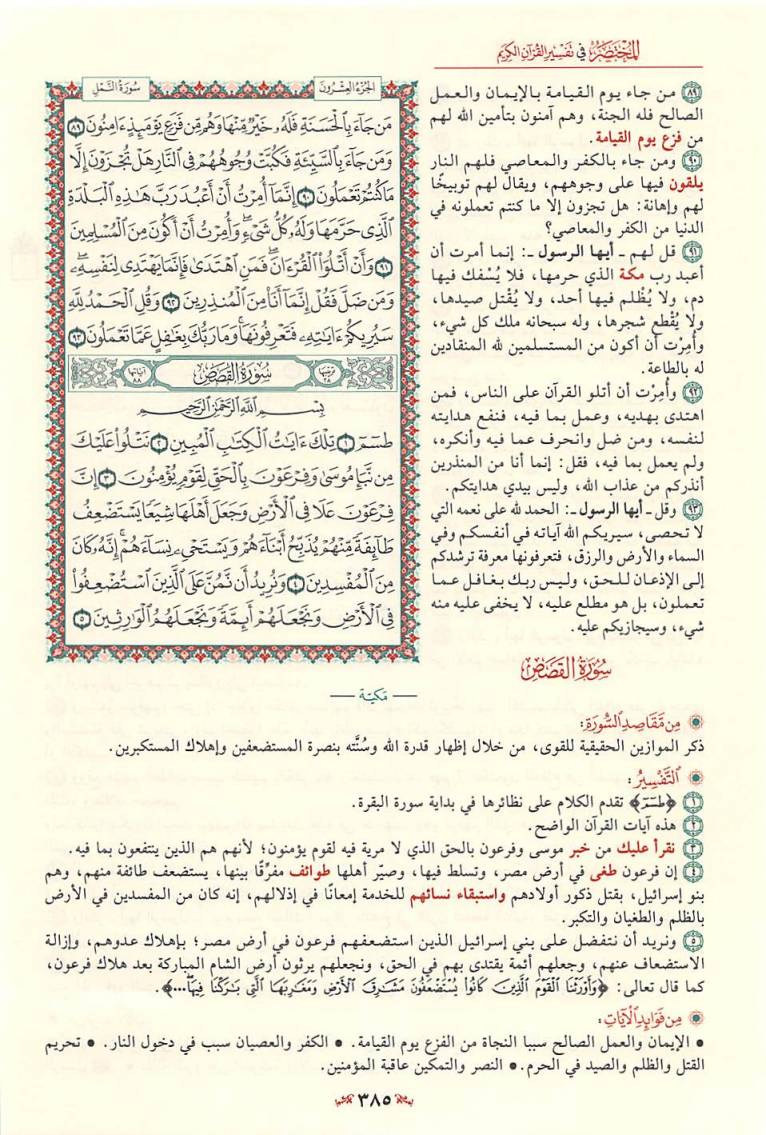 المختصر في تفسير القرآن الكريم
الجزء العشرون
سورة النمل
مَن جَآءَ بِٱلْحَسَنَةِ فَلَهُۥ خَيْرٌ مِّنْهَا وَهُم مِّن فَزَعٍ يَوْمَئِذٍ ءَامِنُونَ ٨٩
وَمَن جَآءَ بِٱلسَّيِّئَةِ فَكُبَّتْ وُجُوهُهُمْ فِي ٱلنَّارِ هَلْ تُجْزَوْنَ إِلَّا
مَا كُنتُمْ تَعْمَلُونَ ٩٠ إِنَّمَآ أُمِرْتُ أَنْ أَعْبُدَ رَبَّ هَٰذِهِ ٱلْبَلْدَةِ
ٱلَّذِي حَرَّمَهَا وَلَهُۥ كُلُّ شَيْءٍ وَأُمِرْتُ أَنْ أَكُونَ مِنَ ٱلْمُسْلِمِينَ
٩١ وَأَنْ أَتْلُوَا۟ ٱلْقُرْءَانَ فَمَنِ ٱهْتَدَىٰ فَإِنَّمَا يَهْتَدِي لِنَفْسِهِۦ
وَمَن ضَلَّ فَقُلْ إِنَّمَآ أَنَا۠ مِنَ ٱلْمُنذِرِينَ ٩٢ وَقُلِ ٱلْحَمْدُ لِلَّهِ
سَيُرِيكُمْ ءَايَٰتِهِۦ فَتَعْرِفُونَهَا وَمَا رَبُّكَ بِغَٰفِلٍ عَمَّا تَعْمَلُونَ ٩٣
ترتيبها ٢٨
سورة القصص
آياتها ٨٨
بِسْمِ ٱللَّهِ ٱلرَّحْمَٰنِ ٱلرَّحِيمِ
طسٓمٓ ١ تِلْكَ ءَايَٰتُ ٱلْكِتَٰبِ ٱلْمُبِينِ ٢ نَتْلُوا۟ عَلَيْكَ
مِن نَّبَإِ مُوسَىٰ وَفِرْعَوْنَ بِٱلْحَقِّ لِقَوْمٍ يُؤْمِنُونَ ٣ إِنَّ
فِرْعَوْنَ عَلَا فِي ٱلْأَرْضِ وَجَعَلَ أَهْلَهَا شِيَعًا يَسْتَضْعِفُ
طَآئِفَةً مِّنْهُمْ يُذَبِّحُ أَبْنَآءَهُمْ وَيَسْتَحْيِۦ نِسَآءَهُمْ إِنَّهُۥ كَانَ
مِنَ ٱلْمُفْسِدِينَ ٤ وَنُرِيدُ أَن نَّمُنَّ عَلَى ٱلَّذِينَ ٱسْتُضْعِفُوا۟
فِي ٱلْأَرْضِ وَنَجْعَلَهُمْ أَئِمَّةً وَنَجْعَلَهُمُ ٱلْوَٰرِثِينَ ٥
٨٩ من جاء يوم القيامة بالإيمان والعمل
الصالح فله الجنة، وهم آمنون بتأمين الله لهم
من فزع يوم القيامة.
٩٠ ومن جاء بالكفر والمعاصي فلهم النار
يلقون فيها على وجوههم، ويقال لهم توبيخًا
لهم وإهانة: هل تجزون إلا ما كنتم تعملونه في
الدنيا من الكفر والمعاصي؟
٩١ قل لهم ـ أيها الرسول ـ: إنما أمرت أن
أعبد رب مكة الذي حرمها، فلا يُسْفك فيها
دم، ولا يُظْلم فيها أحد، ولا يُقْتل صيدها،
ولا يُقْطع شجرها، وله سبحانه ملك كل شيء،
وأُمِرْت أن أكون من المستسلمين لله المنقادين
له بالطاعة.
٩٢ وأُمِرْت أن أتلو القرآن على الناس، فمن
اهتدى بهديه، وعمل بما فيه، فنفع هدايته
لنفسه، ومن ضل وانحرف عما فيه وأنكره،
ولم يعمل بما فيه، فقل: إنما أنا من المنذرين
أنذركم من عذاب الله، وليس بيدي هدايتكم.
٩٣ وقل ـ أيها الرسول ـ: الحمد لله على نعمه التي
لا تحصى، سيريكم الله آياته في أنفسكم وفي
السماء والأرض والرزق، فتعرفونها معرفة ترشدكم
إلى الإذعان للحق، وليس ربك بغافل عما
تعملون، بل هو مطلع عليه، لا يخفى عليه منه
شيء، وسيجازيكم عليه.
سورة القصص
— مكية —
من مقاصد السورة:
ذكر الموازين الحقيقية للقوى، من خلال إظهار قدرة الله وسُنَّته بنصرة المستضعفين وإهلاك المستكبرين.
التفسير:
١ ﴿طسٓمٓ﴾ تقدم الكلام على نظائرها في بداية سورة البقرة.
٢ هذه آيات القرآن الواضح.
٣ نقرأ عليك من خبر موسى وفرعون بالحق الذي لا مرية فيه لقوم يؤمنون؛ لأنهم هم الذين ينتفعون بما فيه.
٤ إن فرعون طغى في أرض مصر، وتسلط فيها، وصيّر أهلها طوائف مفرِّقًا بينها، يستضعف طائفة منهم، وهم
بنو إسرائيل، بقتل ذكور أولادهم واستبقاء نسائهم للخدمة إمعانًا في إذلالهم، إنه كان من المفسدين في الأرض
بالظلم والطغيان والتكبر.
٥ ونريد أن نتفضل على بني إسرائيل الذين استضعفهم فرعون في أرض مصر؛ بإهلاك عدوهم، وإزالة
الاستضعاف عنهم، وجعلهم أئمة يقتدى بهم في الحق، ونجعلهم يرثون أرض الشام المباركة بعد هلاك فرعون،
كما قال تعالى: ﴿وَأَوْرَثْنَا ٱلْقَوْمَ ٱلَّذِينَ كَانُوا۟ يُسْتَضْعَفُونَ مَشَٰرِقَ ٱلْأَرْضِ وَمَغَٰرِبَهَا ٱلَّتِي بَٰرَكْنَا فِيهَا...﴾.
من فوائد الآيات:
• الإيمان والعمل الصالح سببا النجاة من الفزع يوم القيامة. • الكفر والعصيان سبب في دخول النار. • تحريم
القتل والظلم والصيد في الحرم. • النصر والتمكين عاقبة المؤمنين.
٣٨٥